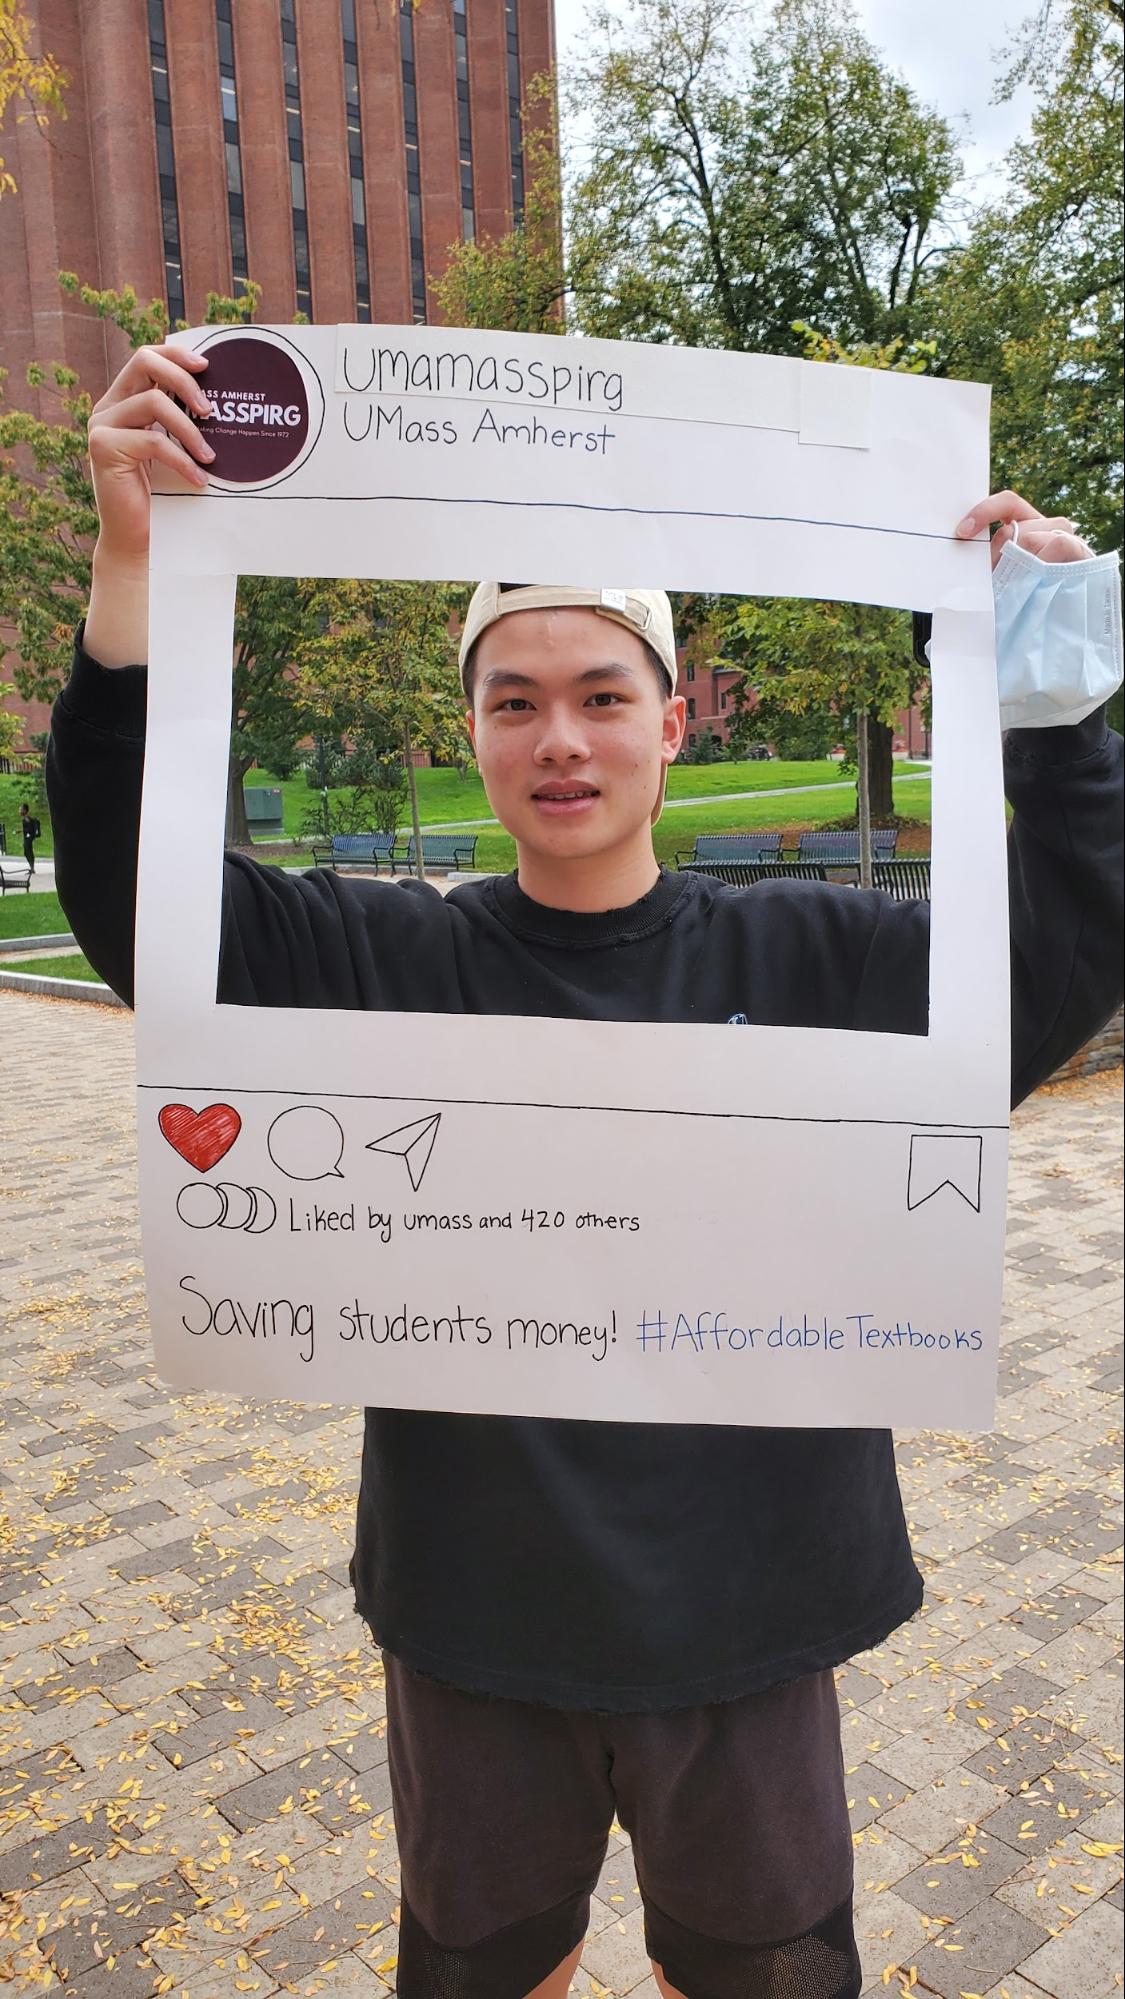 ASS AMHERST
MASSPIRG
aking Change Happen Since 1972
umamasspirg
UMass Amherst
Liked by umass and 420 others
Saving students money! #AffordableTextbooks